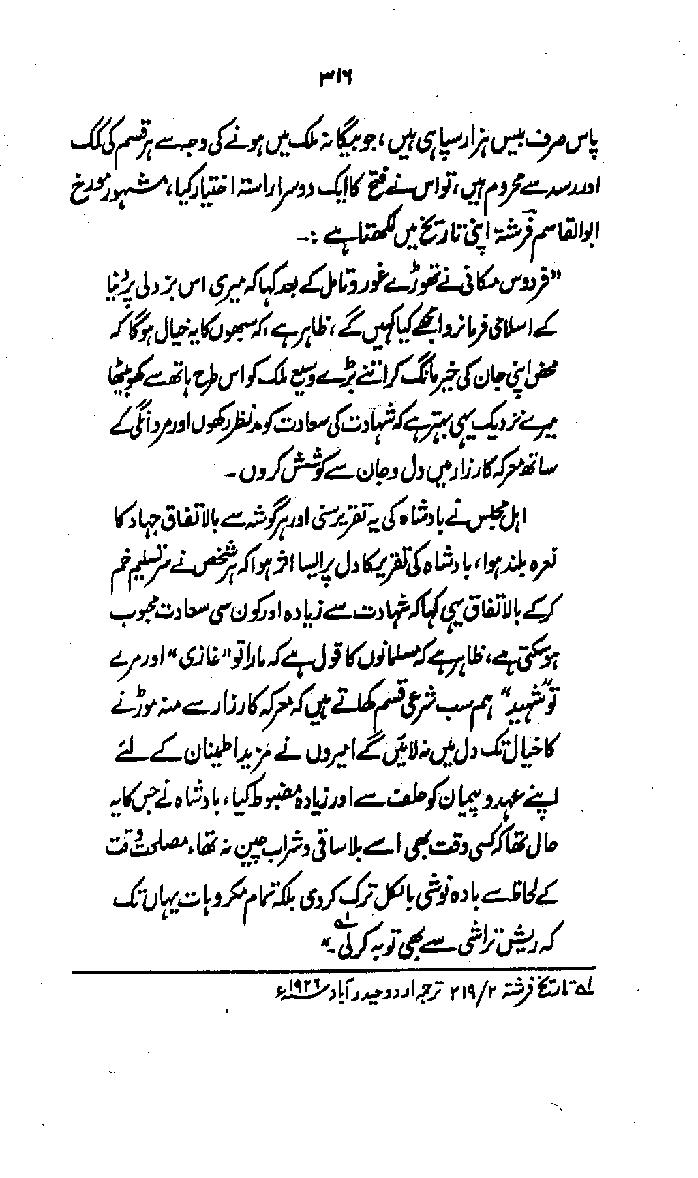 ۳۱۶
پاس صرف بیس ہزار سپاہی ہیں، جو بیگانہ ملک میں ہونے کی وجہ سے ہر قسم کی کمک
اور رسد سے محروم ہیں، تو اس نے فتح کا ایک دوسرا راستہ اختیار کیا، مشہور مورخ
ابوالقاسم فرشتہ اپنی تاریخ میں لکھتا ہے :-
"فردوس مکانی نے تھوڑے غور و تامل کے بعد کہا کہ میری اس بزدلی پر دُنیا
کے اسلامی فرمانروا مجھے کیا کہیں گے، ظاہر ہے، کہ سبھوں کا یہ خیال ہوگا کہ
محض اپنی جان کی خیر مانگ کر اتنے بڑے وسیع ملک کو اس طرح ہاتھ سے کھو بیٹھا
میرے نزدیک یہی بہتر ہے کہ شہادت کی سعادت کو مدنظر رکھوں اور مردانگی کے
ساتھ معرکہ کارزار میں دل و جان سے کوشش کروں۔
اہل مجلس نے بادشاہ کی یہ تقریر سنی اور ہر گوشہ سے بالاتفاق جہاد کا
نعرہ بلند ہوا، بادشاہ کی تقریر کا دل پر ایسا اثر ہوا کہ ہر شخص نے سر تسلیم خم
کر کے بالاتفاق یہی کہا کہ شہادت سے زیادہ اور کون سی سعادت محبوب
ہو سکتی ہے، ظاہر ہے کہ مسلمانوں کا قول ہے کہ مارا تو "غازی" اور مرے
تو "شہید" ہم سب شرعی قسم کھاتے ہیں کہ معرکہ کارزار سے منہ موڑنے
کا خیال تک دل میں نہ لائیں گے امیروں نے مزید اطمینان کے لئے
اپنے عہد و پیمان کو حلف سے اور زیادہ مضبوط کیا، بادشاہ نے جس کا یہ
حال تھا کہ کسی وقت بھی اسے بلا ساقی و شراب چین نہ تھا، مصلحت وقت
کے لحاظ سے بادہ نوشی بالکل ترک کر دی بلکہ تمام مکروہات یہاں تک
کہ ریش تراشی سے بھی توبہ کر لی۔"؎۱
؎۱ تاریخ فرشتہ ۲/۲۱۹ ترجمہ اردو حیدرآباد ۱۹۲۶ء